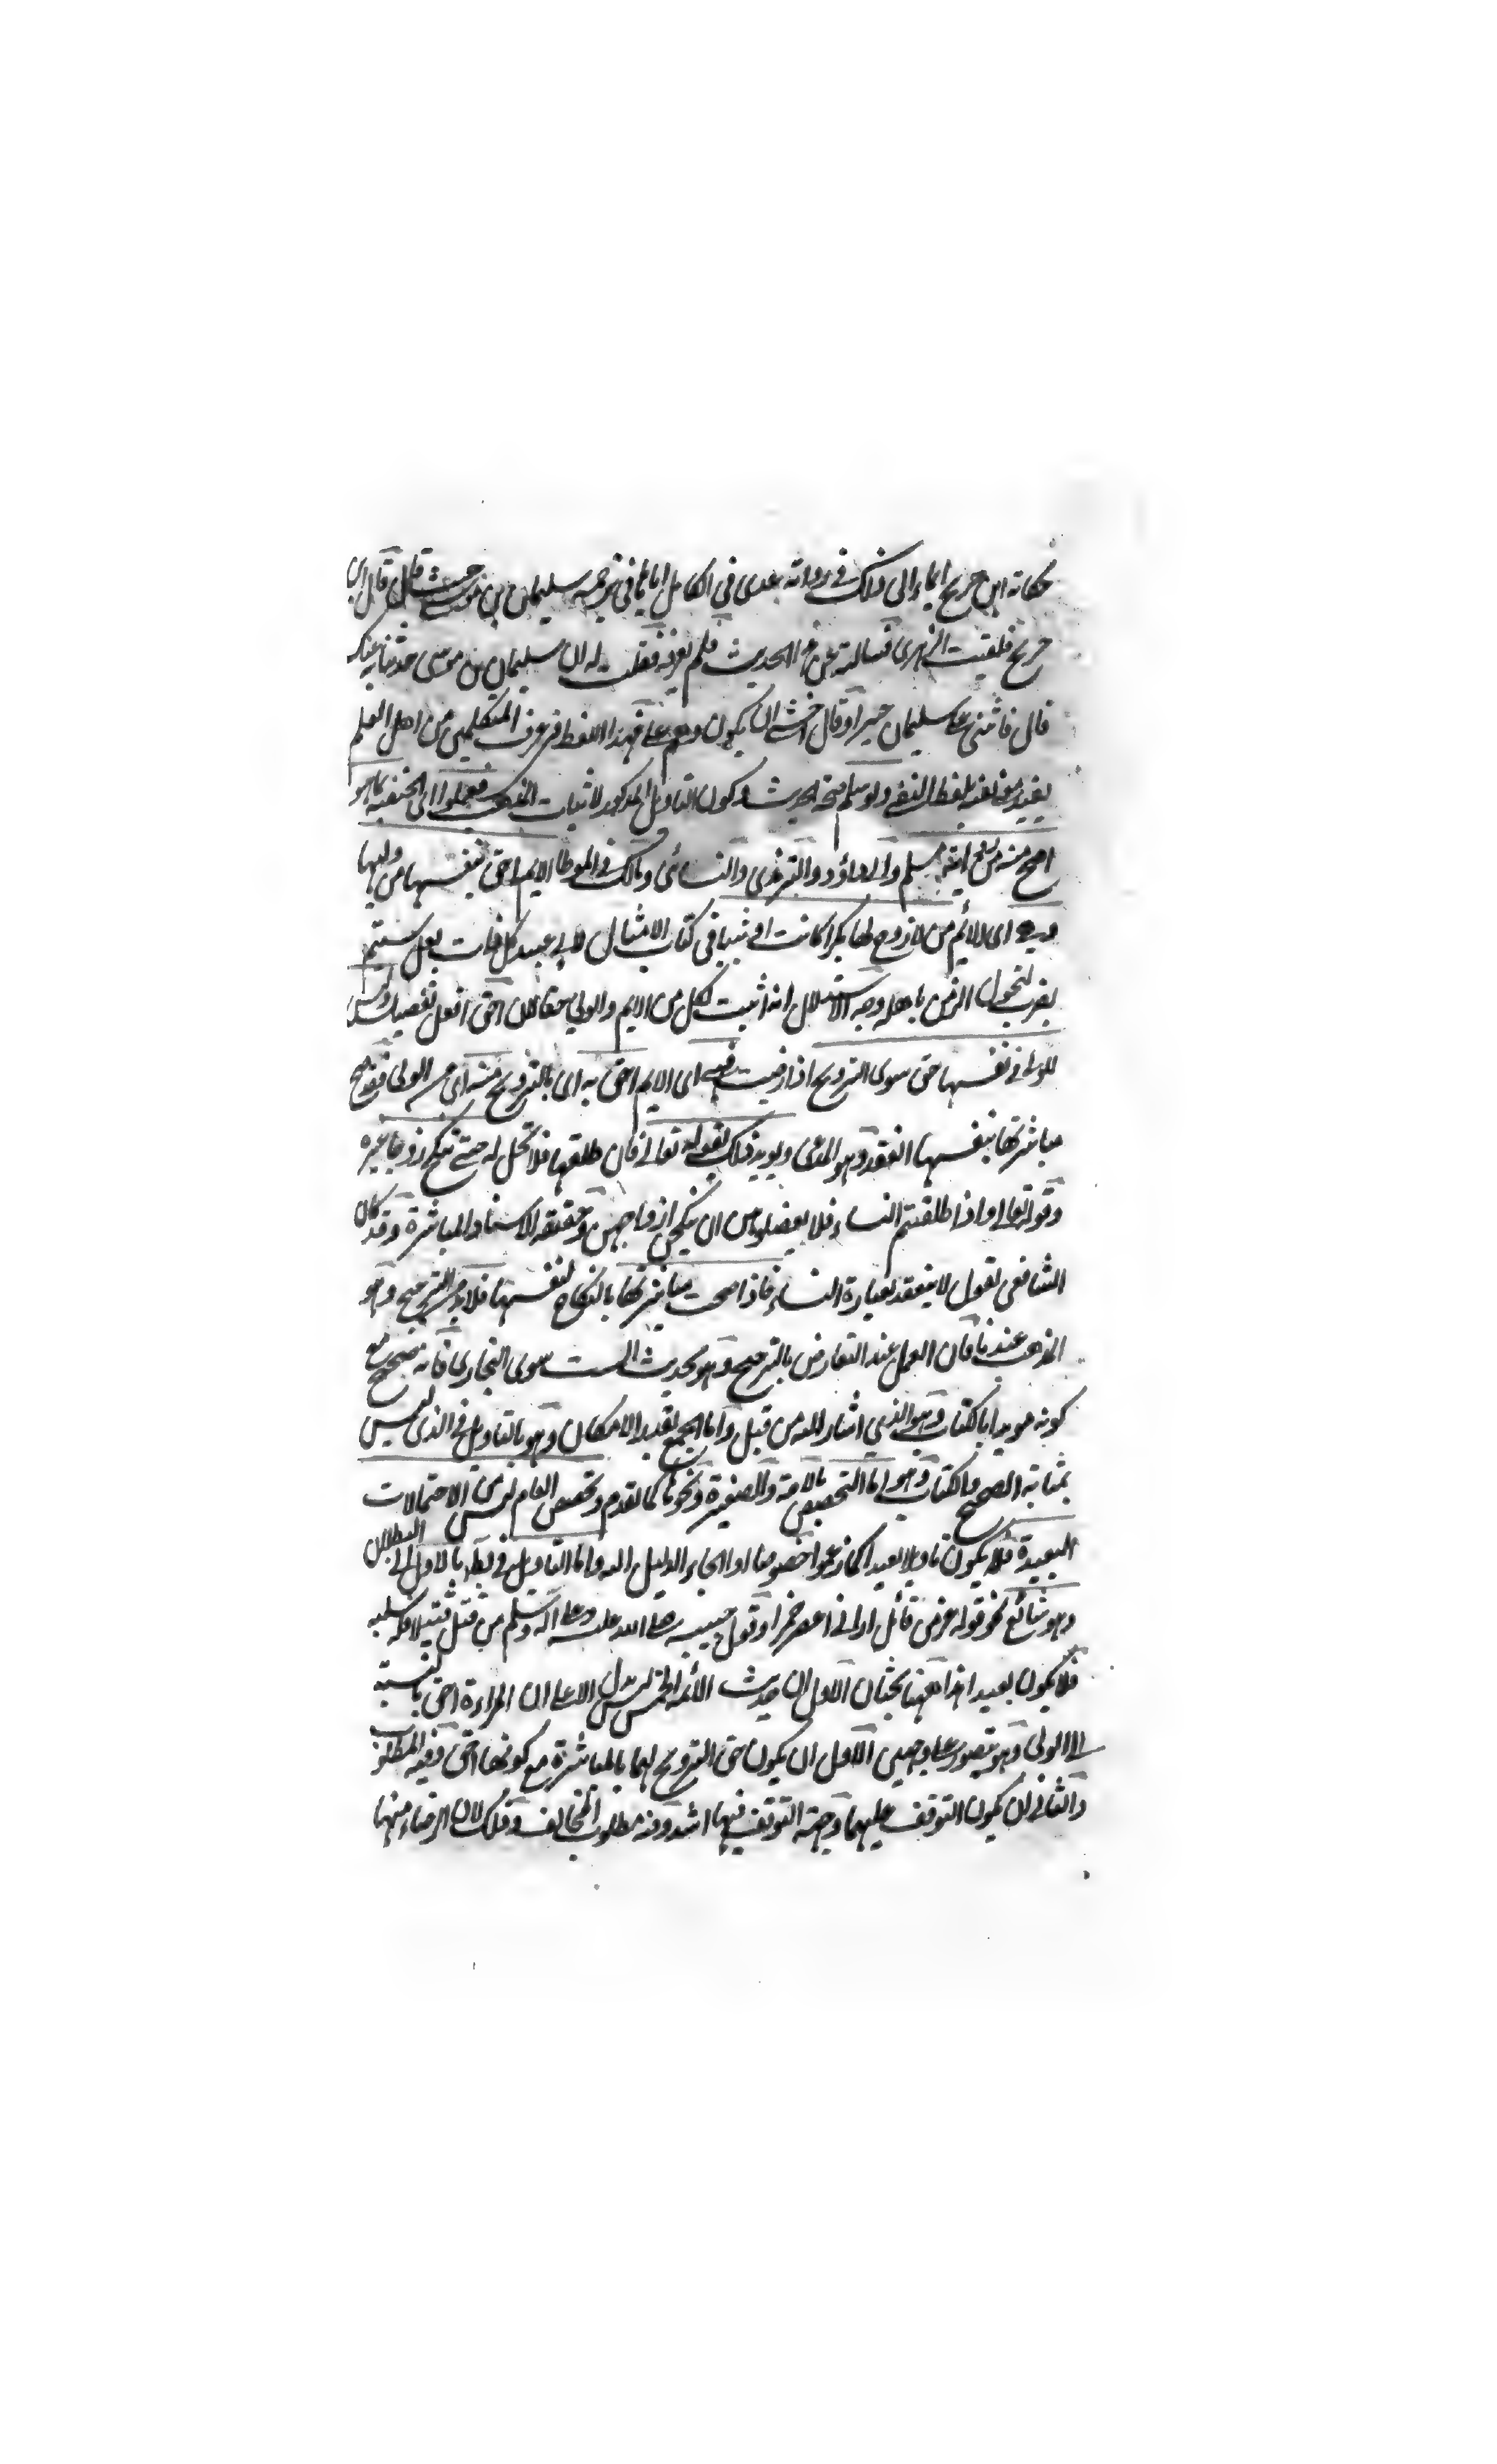 حكاية ابن جريج ايماء الى ذلك في رواية عدى في الكامل اياها في ترجمة سليمان بن موسى حيث قال قال ابن
جريج فلقيت الزهرى فسالته عن هذا الحديث فلم يعرفه فقلت له ان سليمان بن موسى حدثنا به عنك
قال فاثنى على سليمان خيرا وقال اخشى ان يكون وهم على فهذا اللفظ في عرف المتكلمين من اهل العلم
يفيد معنى نفيه بلفظ النفى ولو سلم صحة الحديث وكون التاويل المذكور لاثبات فعملوا اى الحنفية بما هو
اصح منه من رواية مسلم وابى داؤد والترمذى والنسائى ومالك في الموطا الايم احق بنفسها من وليها
وهى اى الايم من لا زوج لها بكرا كانت او ثيبا في كتاب الامثال لابى عبيد كل ذات بعل ستئيم
يضرب لتحول الزمن باهله وجه الاستدلال انه اثبت لكل من الايم والولى حقا لان احق افعل تفضيل وليس
للولى في نفسها حق سوى التزويج اذا رضيت فهى اى الايم احق به اى بالتزويج منه اى من الولى فيصح
مباشرتها بنفسها العقد وهو المدعى ويويد ذلك بقوله تعالى فان طلقها فلا تحل له حتى تنكح زوجا غيره
وقوله تعالى واذا طلقتم النساء فلا تعضلوهن ان ينكحن ازواجهن وحقيقة الاسناد المباشرة وقد كان
الشافعى يقول لا ينعقد بعبارة النساء فاذا صحت مباشرتها بالنكاح لنفسها فلا بد من الترجيح وهو
المذهب عندنا فان العمل عند التعارض بالترجيح وهو بحديث الستة سوى البخارى فانه صحيح مع
كونه مويدا بالكتاب وهو الذى اشار اليه من قبل واما الجمع بقدر الامكان وهو بالتاويل في الذى ليس
بمثابة الصحيح والكتاب وهو اما التخصيص بالامة والصغيرة ونحوها كما تقدم وتخصيص العام ليس من الاحتمالات
البعيدة فلا يكون تاويلا بعيدا كما زعموا خصوصا اذا الجاء الدليل اليه واما التاويل في بطل بالاول الى البطلان
وهو شائع نحو قوله عز من قائل ارانى اعصر خمرا وقول حبيبه صلى الله عليه وعلى اله وسلم من قتل قتيلا فله سلبه
فلا يكون بعيدا ثم ههنا بحثان الاول ان حديث الائمة الخمس ليس يدل الا على ان المراءة احق بالنسبة
الى الولى وهو يتصور على وجهين الاول ان يكون حق التزويج لهما بالمباشرة مع كونها احق وفيه المطلوب
والثانى ان يكون التوقف عليهما وجهة التوقف فيها اشد وفيه مطلوب المخالف وذلك لان الرضاء منها